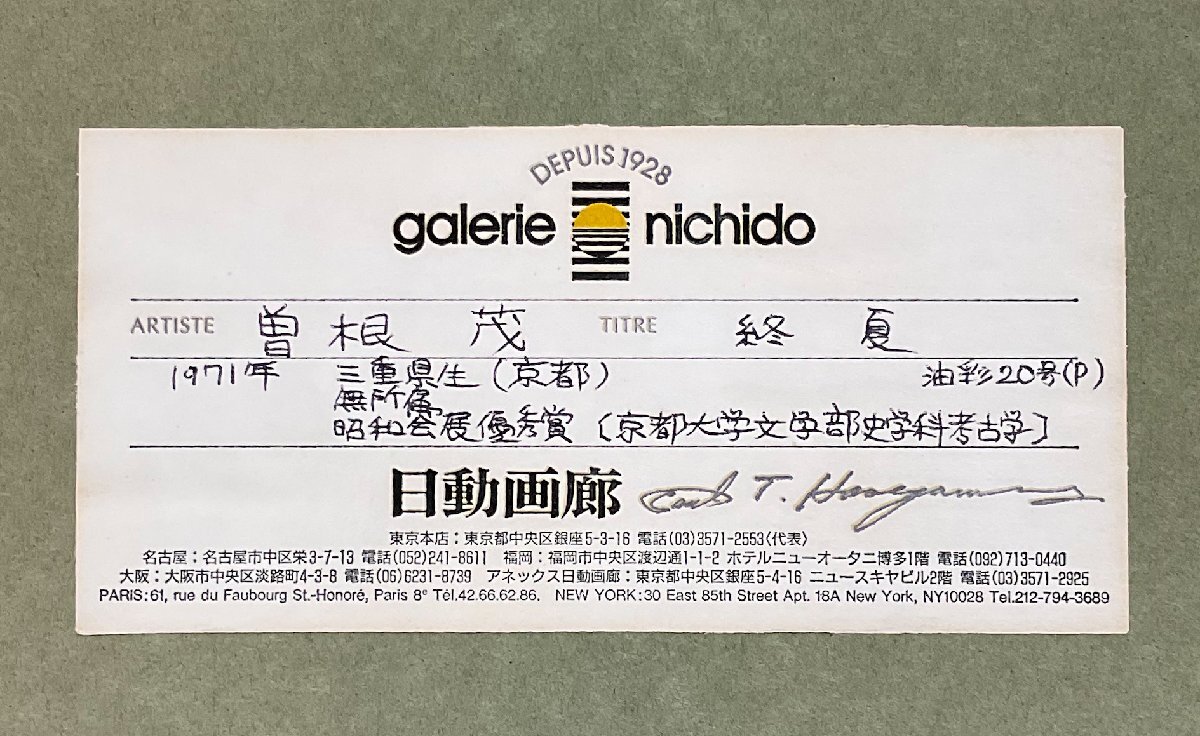 DEPUIS 1928
galerie nichido
ARTISTE 曽根 茂 TITRE 終 夏
1971年 三重県生(京都) 油彩20号(P)
無所属
昭和会展優秀賞〔京都大学文学部史学科考古学〕
日動画廊 T. Hasegawa
東京本店:東京都中央区銀座5-3-16 電話(03)3571-2553〈代表〉
名古屋:名古屋市中区栄3-7-13 電話(052)241-8611 福岡:福岡市中央区渡辺通1-1-2 ホテルニューオータニ博多1階 電話(092)713-0440
大阪:大阪市中央区淡路町4-3-8 電話(06)6231-8739 アネックス日動画廊:東京都中央区銀座5-4-16 ニュースキヤビル2階 電話(03)3571-2925
PARIS:61, rue du Faubourg St.-Honoré, Paris 8e Tél.42.66.62.86. NEW YORK:30 East 85th Street Apt. 18A New York, NY10028 Tel.212-794-3689